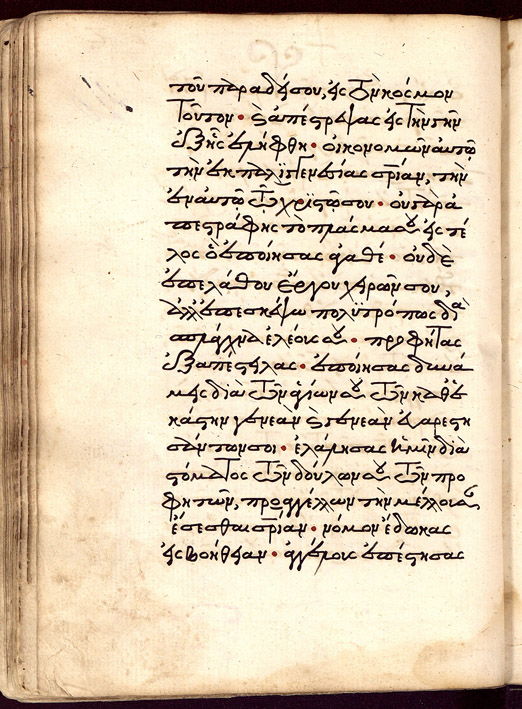 τοῦ παραδείσου, εἰς τὸν κόσμον
τοῦτον · καὶ ἀπέστρεψας εἰς τὴν γῆν
ἐξ ἧς ἐλήφθη · οἰκονομῶν αὐτῷ
τὴν ἐκ παλιγγενεσίας σρίαν, τὴν
ἐν αὐτῷ τῷ χριστῷ σου · οὐ γὰρ ἀ
πεστράφης τὸ πλάσμα σου εἰς τέ
λος ὃ ἐποίησας ἀγαθέ · οὐδὲ
ἐπελάθου ἔργου χειρῶν σου,
ἀλλ' ἐπεσκέψω πολυτρόπως διὰ
σπλάγχνα ἐλέους σου · προφήτας
ἐξαπέστειλας · ἐποίησας δυνά
μεις διὰ τῶν ἁγίων σου τῶν καθ' ἑ
κάστην γενεὰν καὶ γενεὰν εὐαρεστη
σάντων σοι · ἐλάλησας ἡμῖν διὰ
στόματος τῶν δούλων σου τῶν προ
φητῶν, προαγγέλλων τὴν μέλλουσαν
ἔσεσθαι σρίαν · νόμον ἔδωκας
εἰς βοήθειαν · ἀγγέλους ἐπέστησας